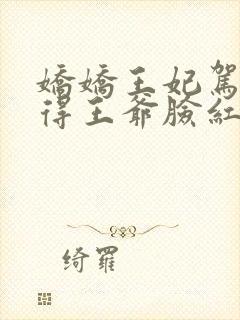 嬌嬌王妃駕
得王爺臉紅
绮羅